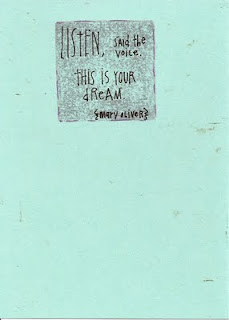 LISTEN, said the
voice.
THIS IS YOUR
dReAM.
{MARY OLIVER}